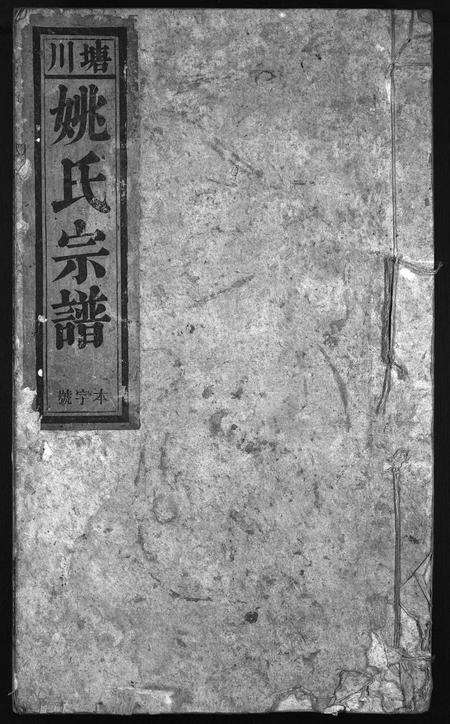 塘川
姚氏宗譜
本字號